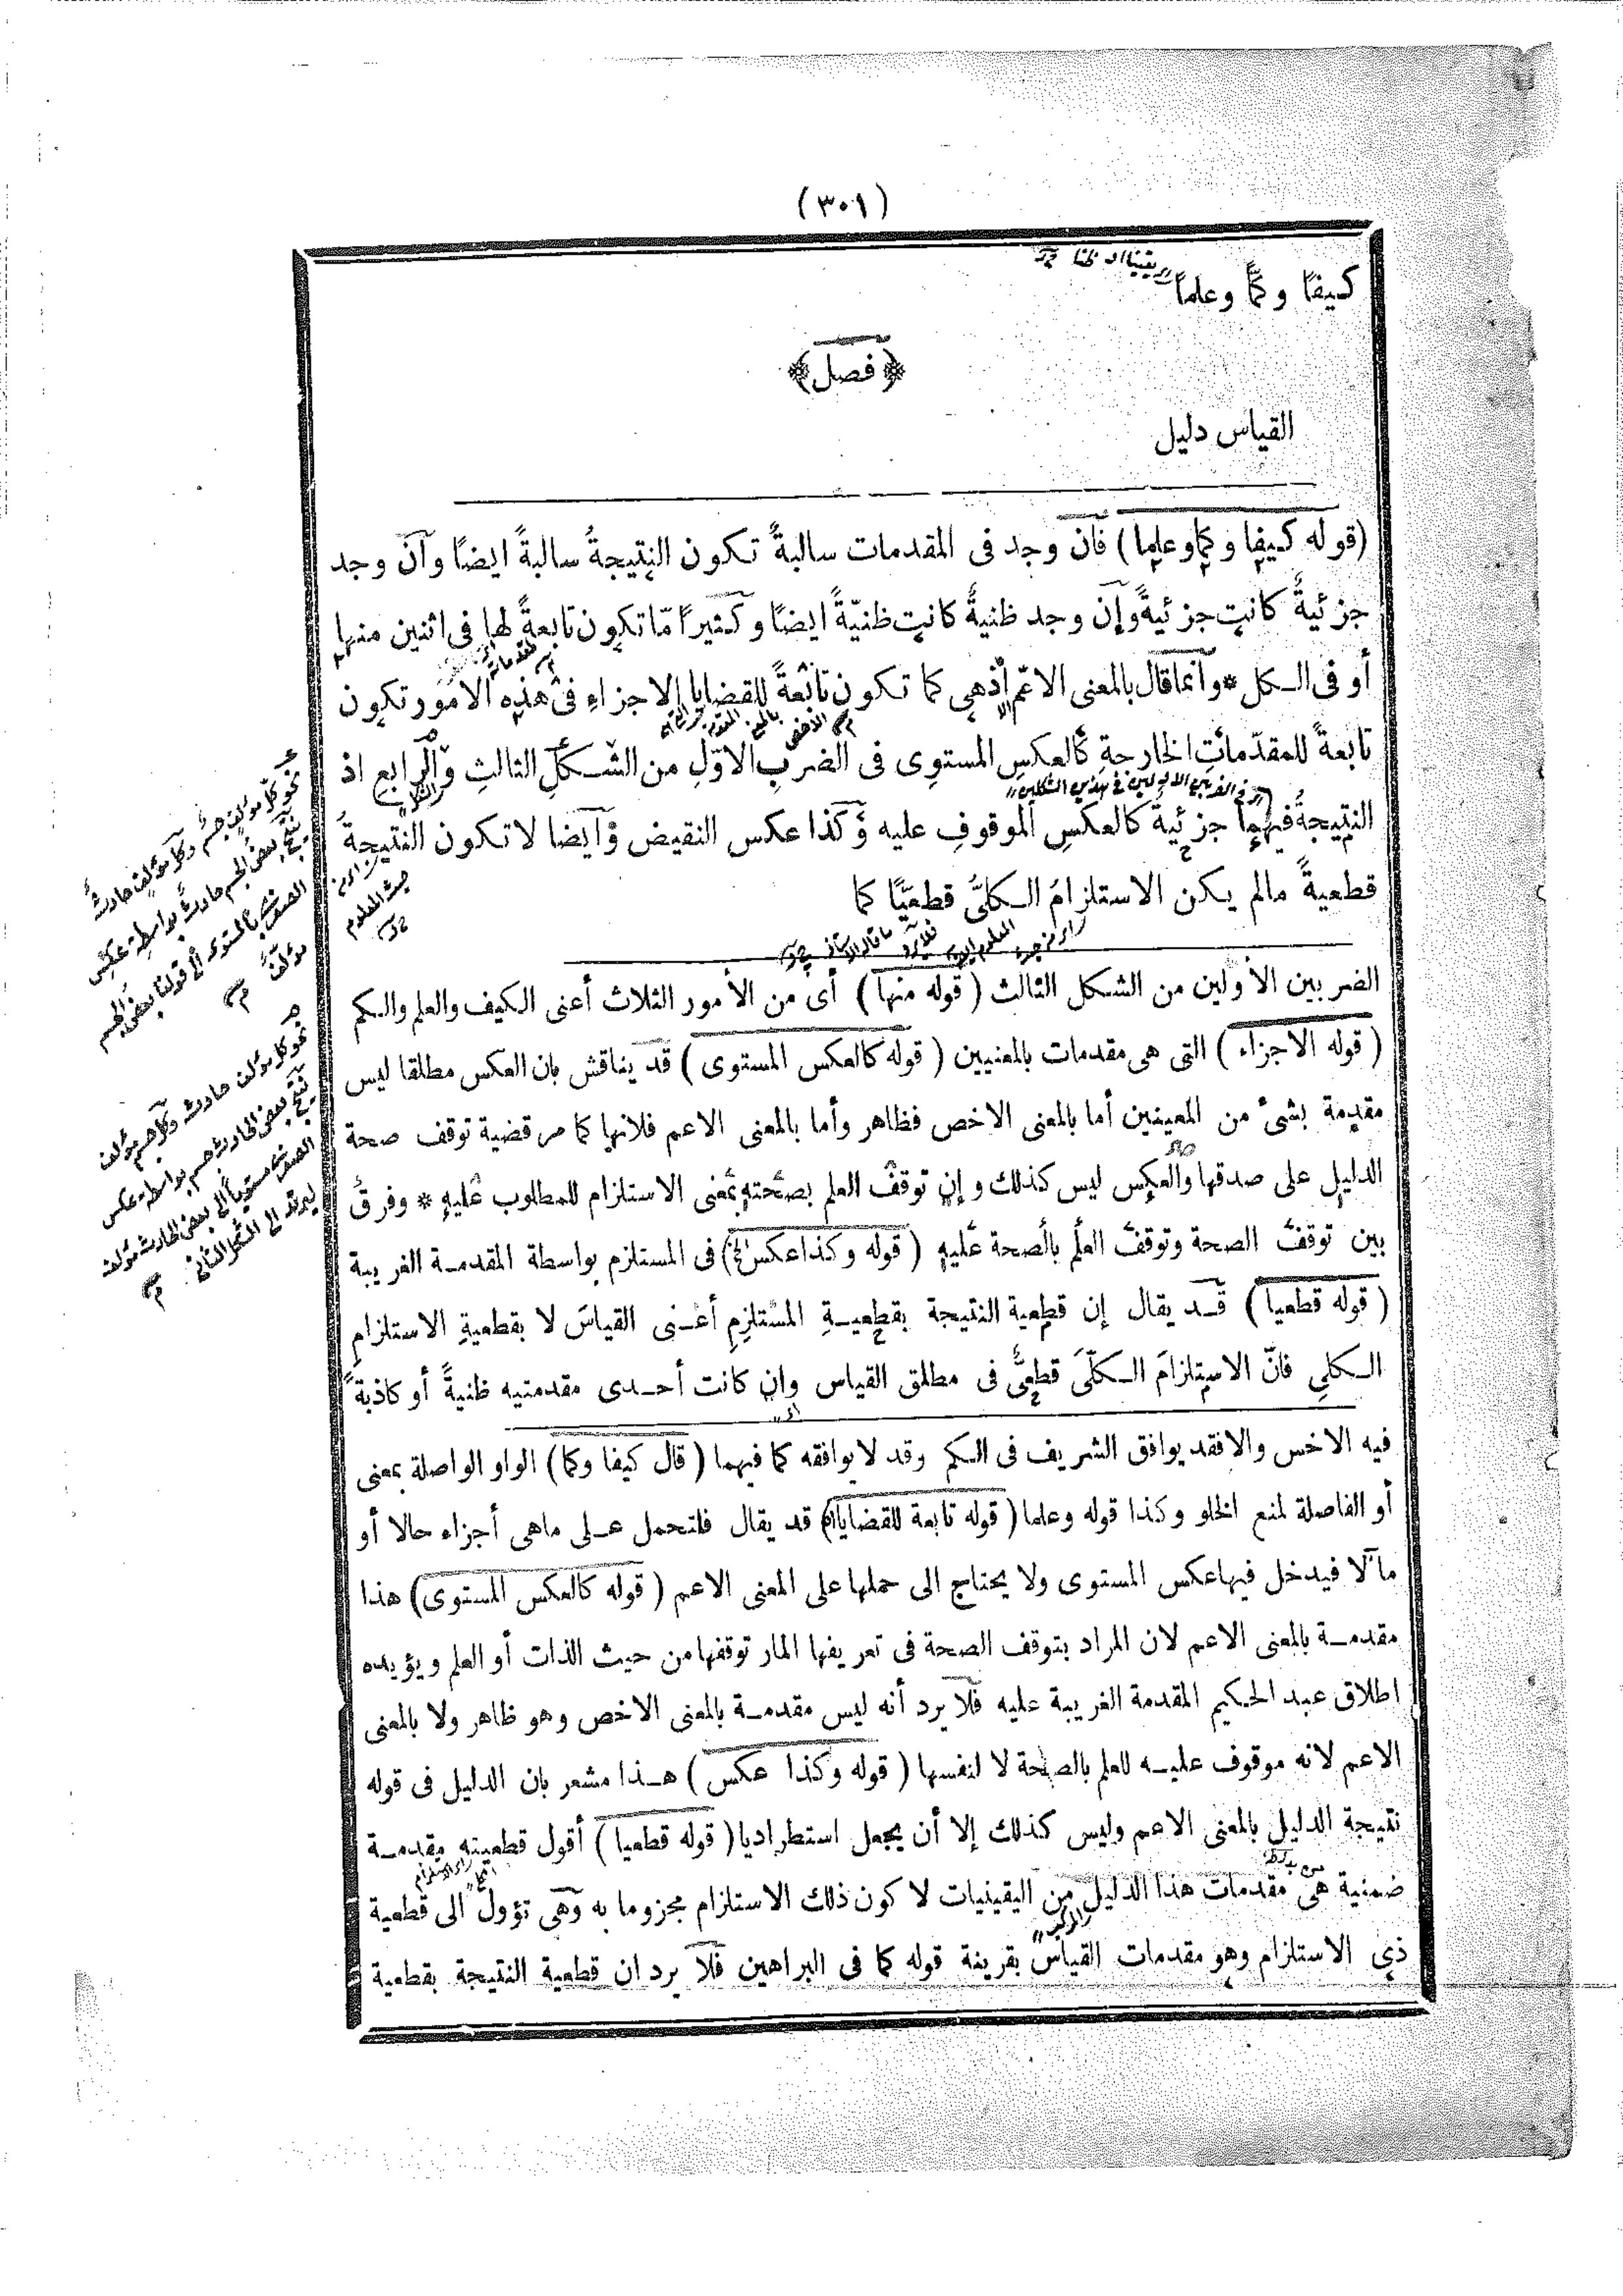 (٣٠١)
كيفًا وكمًّا وعلماً
﴿فصل﴾
القياس دليل
(قوله كيفا وكما وعلما) فان وجد فى المقدمات سالبةٌ تكون النتيجةُ سالبةً ايضًا وان وجد
جزئيةٌ كانت جزئيةً وإن وجد ظنيةٌ كانت ظنيّةً ايضًا وكثيرًا مّا تكون تابعةً لها فى اثنين منها
أو فى الكل * وانما قال بالمعنى الاعمّ اذ هى كما تكون تابعةً للقضايا الاجزاءِ فى هذه الامور تكون
تابعةً للمقدّمات الخارجةِ كالعكسِ المستوِى فى الضربِ الاوّلِ من الشكلِ الثالثِ والرابعِ اذ
النتيجةُ فيهما جزئيةٌ كالعكسِ الموقوفِ عليه وكذا عكس النقيض وايضا لا تكون النتيجةُ
قطعيةً مالم يكن الاستلزامُ الكلىُّ قطعيًّا كما
الضربين الأولين من الشكل الثالث (قوله منها) أى من الأمور الثلاث أعنى الكيف والعلم والكم
(قوله الاجزاء) التى هى مقدمات بالمعنيين (قوله كالعكس المستوى) قد يناقش بان العكس مطلقا ليس
مقدمة بشئ من المعنيين أما بالمعنى الاخص فظاهر وأما بالمعنى الاعم فلانها كما مر قضية توقف صحة
الدليل على صدقها والعكس ليس كذلك وإن توقف العلم بصحته بمعنى الاستلزام للمطلوب عليه * وفرقٌ
بين توقف الصحة وتوقف العلم بالصحة عليه (قوله وكذا عكس الخ) فى المستلزم بواسطة المقدمة الغريبة
(قوله قطعيا) قد يقال إن قطعية النتيجة بقطعيةِ المستلزِمِ أعنى القياسَ لا بقطعيةِ الاستلزامِ
الكلىِ فانّ الاستلزامَ الكلّىَ قطعىٌّ فى مطلق القياس وان كانت أحدى مقدمتيه ظنيةً أو كاذبةً
فيه الاخس والافقد يوافق الشريف فى الكم وقد لا يوافقه كما فيهما (قال كيفا وكما) الواو الواصلة بمعنى
أو الفاصلة لمنع الخلو وكذا قوله وعلما (قوله تابعة للقضايا الخ) قد يقال فلتحمل على ماهى أجزاء حالا أو
مآلا فيدخل فيها عكس المستوى ولا يحتاج الى حملها على المعنى الاعم (قوله كالعكس المستوى) هذا
مقدمة بالمعنى الاعم لان المراد بتوقف الصحة فى تعريفها المار توقفها من حيث الذات أو العلم ويؤيده
اطلاق عبد الحكيم المقدمة الغريبة عليه فلا يرد أنه ليس مقدمة بالمعنى الاخص وهو ظاهر ولا بالمعنى
الاعم لانه موقوف عليه للعلم بالصحة لا لنفسها (قوله وكذا عكس) هذا مشعر بان الدليل فى قوله
نتيجة الدليل بالمعنى الاعم وليس كذلك إلا أن يجعل استطراديا (قوله قطعيا) أقول قطعيته مقدمة
ضمنية هى مقدمات هذا الدليل من اليقينيات لا كون ذلك الاستلزام مجزوما به وهى تؤول الى قطعية
ذى الاستلزام وهو مقدمات القياس بقرينة قوله كما فى البراهين فلا يرد ان قطعية النتيجة بقطعية